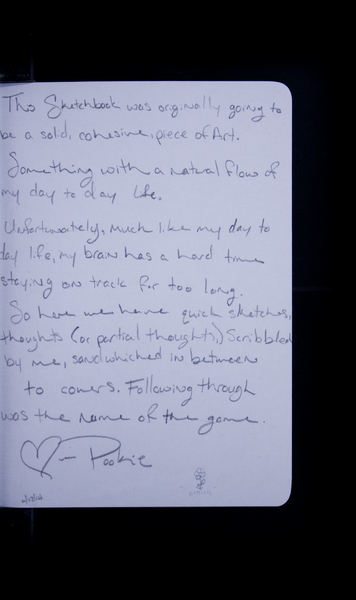 This Sketchbook was originally going to
be a solid, cohesive, piece of Art.
Something with a natural flow of
my day to day life.
Unfortunately, much like my day to
day life, my brain has a hard time
staying on track for too long.
So here we have quick sketches,
thoughts (or partial thoughts,) Scribbled
by me, sandwhiched in between
to covers. Following through
was the name of the game.
♡- Pookie